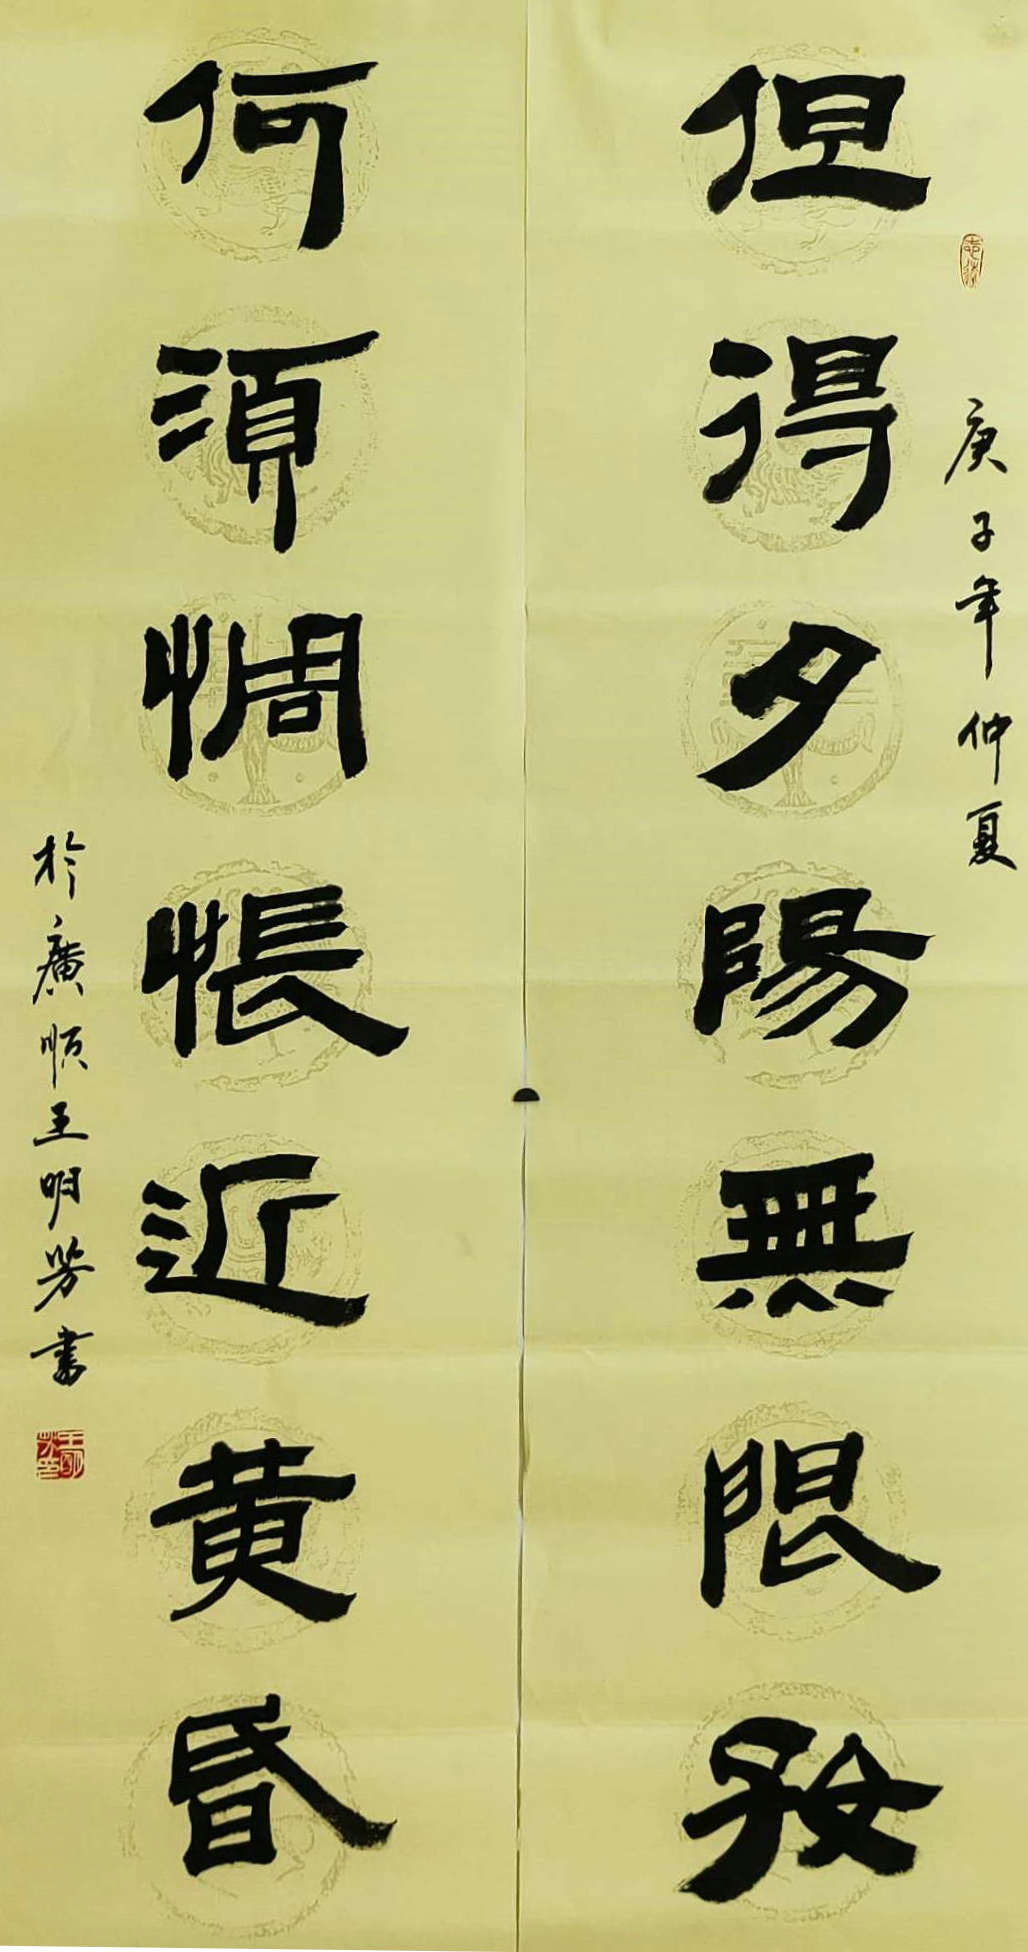 庚子年仲夏
但得夕陽無限好
何須惆悵近黄昏
於廣順王明芳書
王明芳印